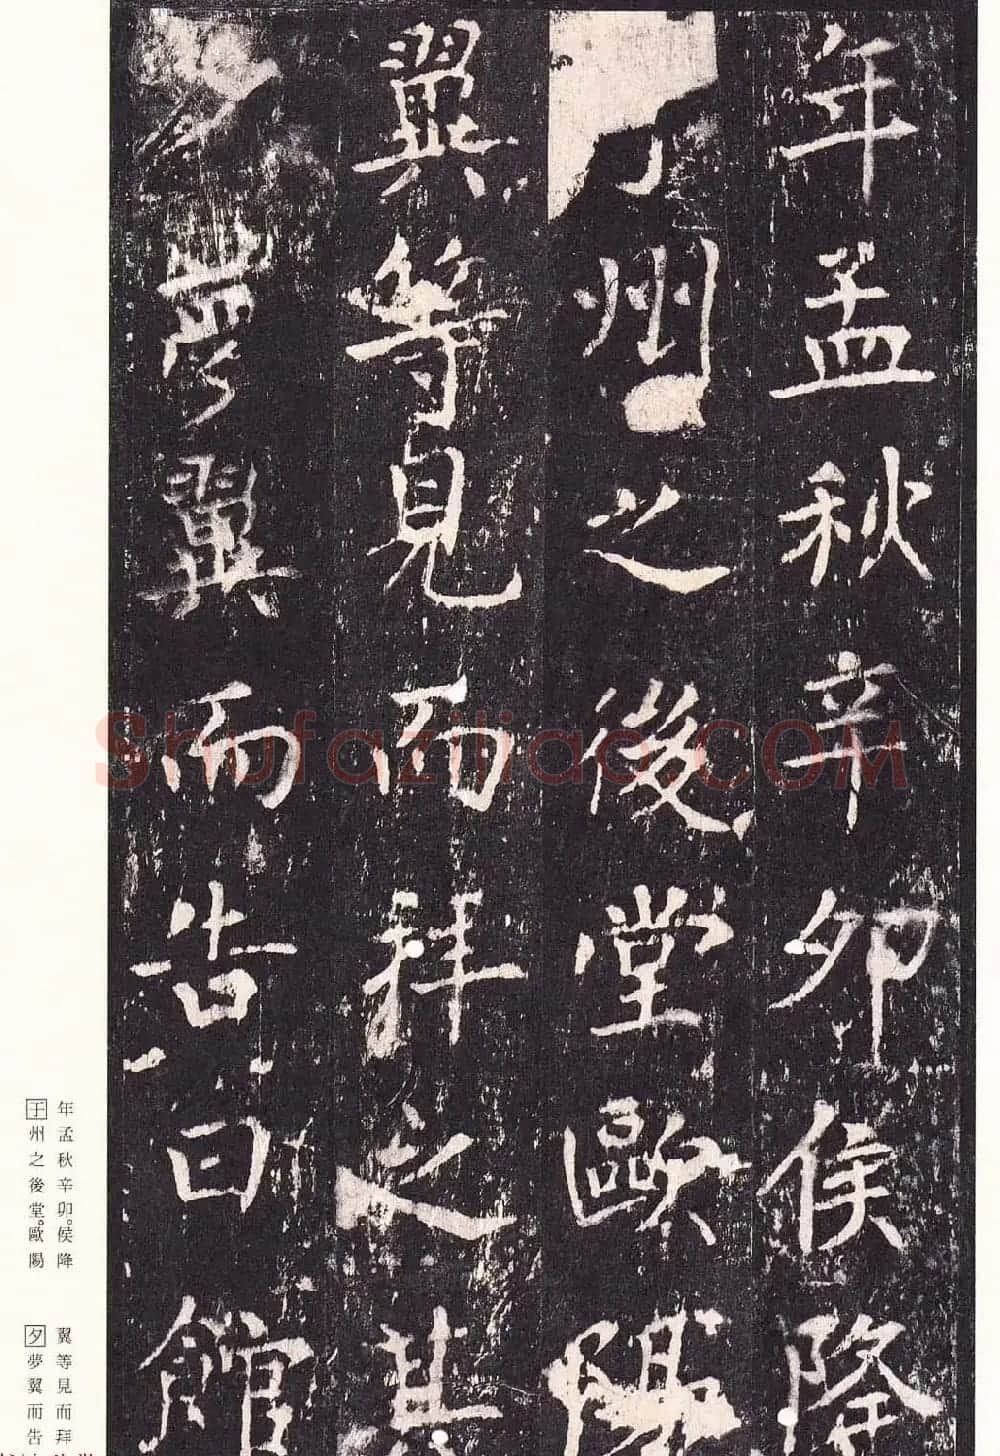 年孟秋辛卯侯降
州之後堂歐陽
翼等見而拜之其
夢翼而告曰館
Shufaziliao.COM
年孟秋辛卯。侯降
于州之後堂。歐陽
翼等見而拜
夕夢翼而告